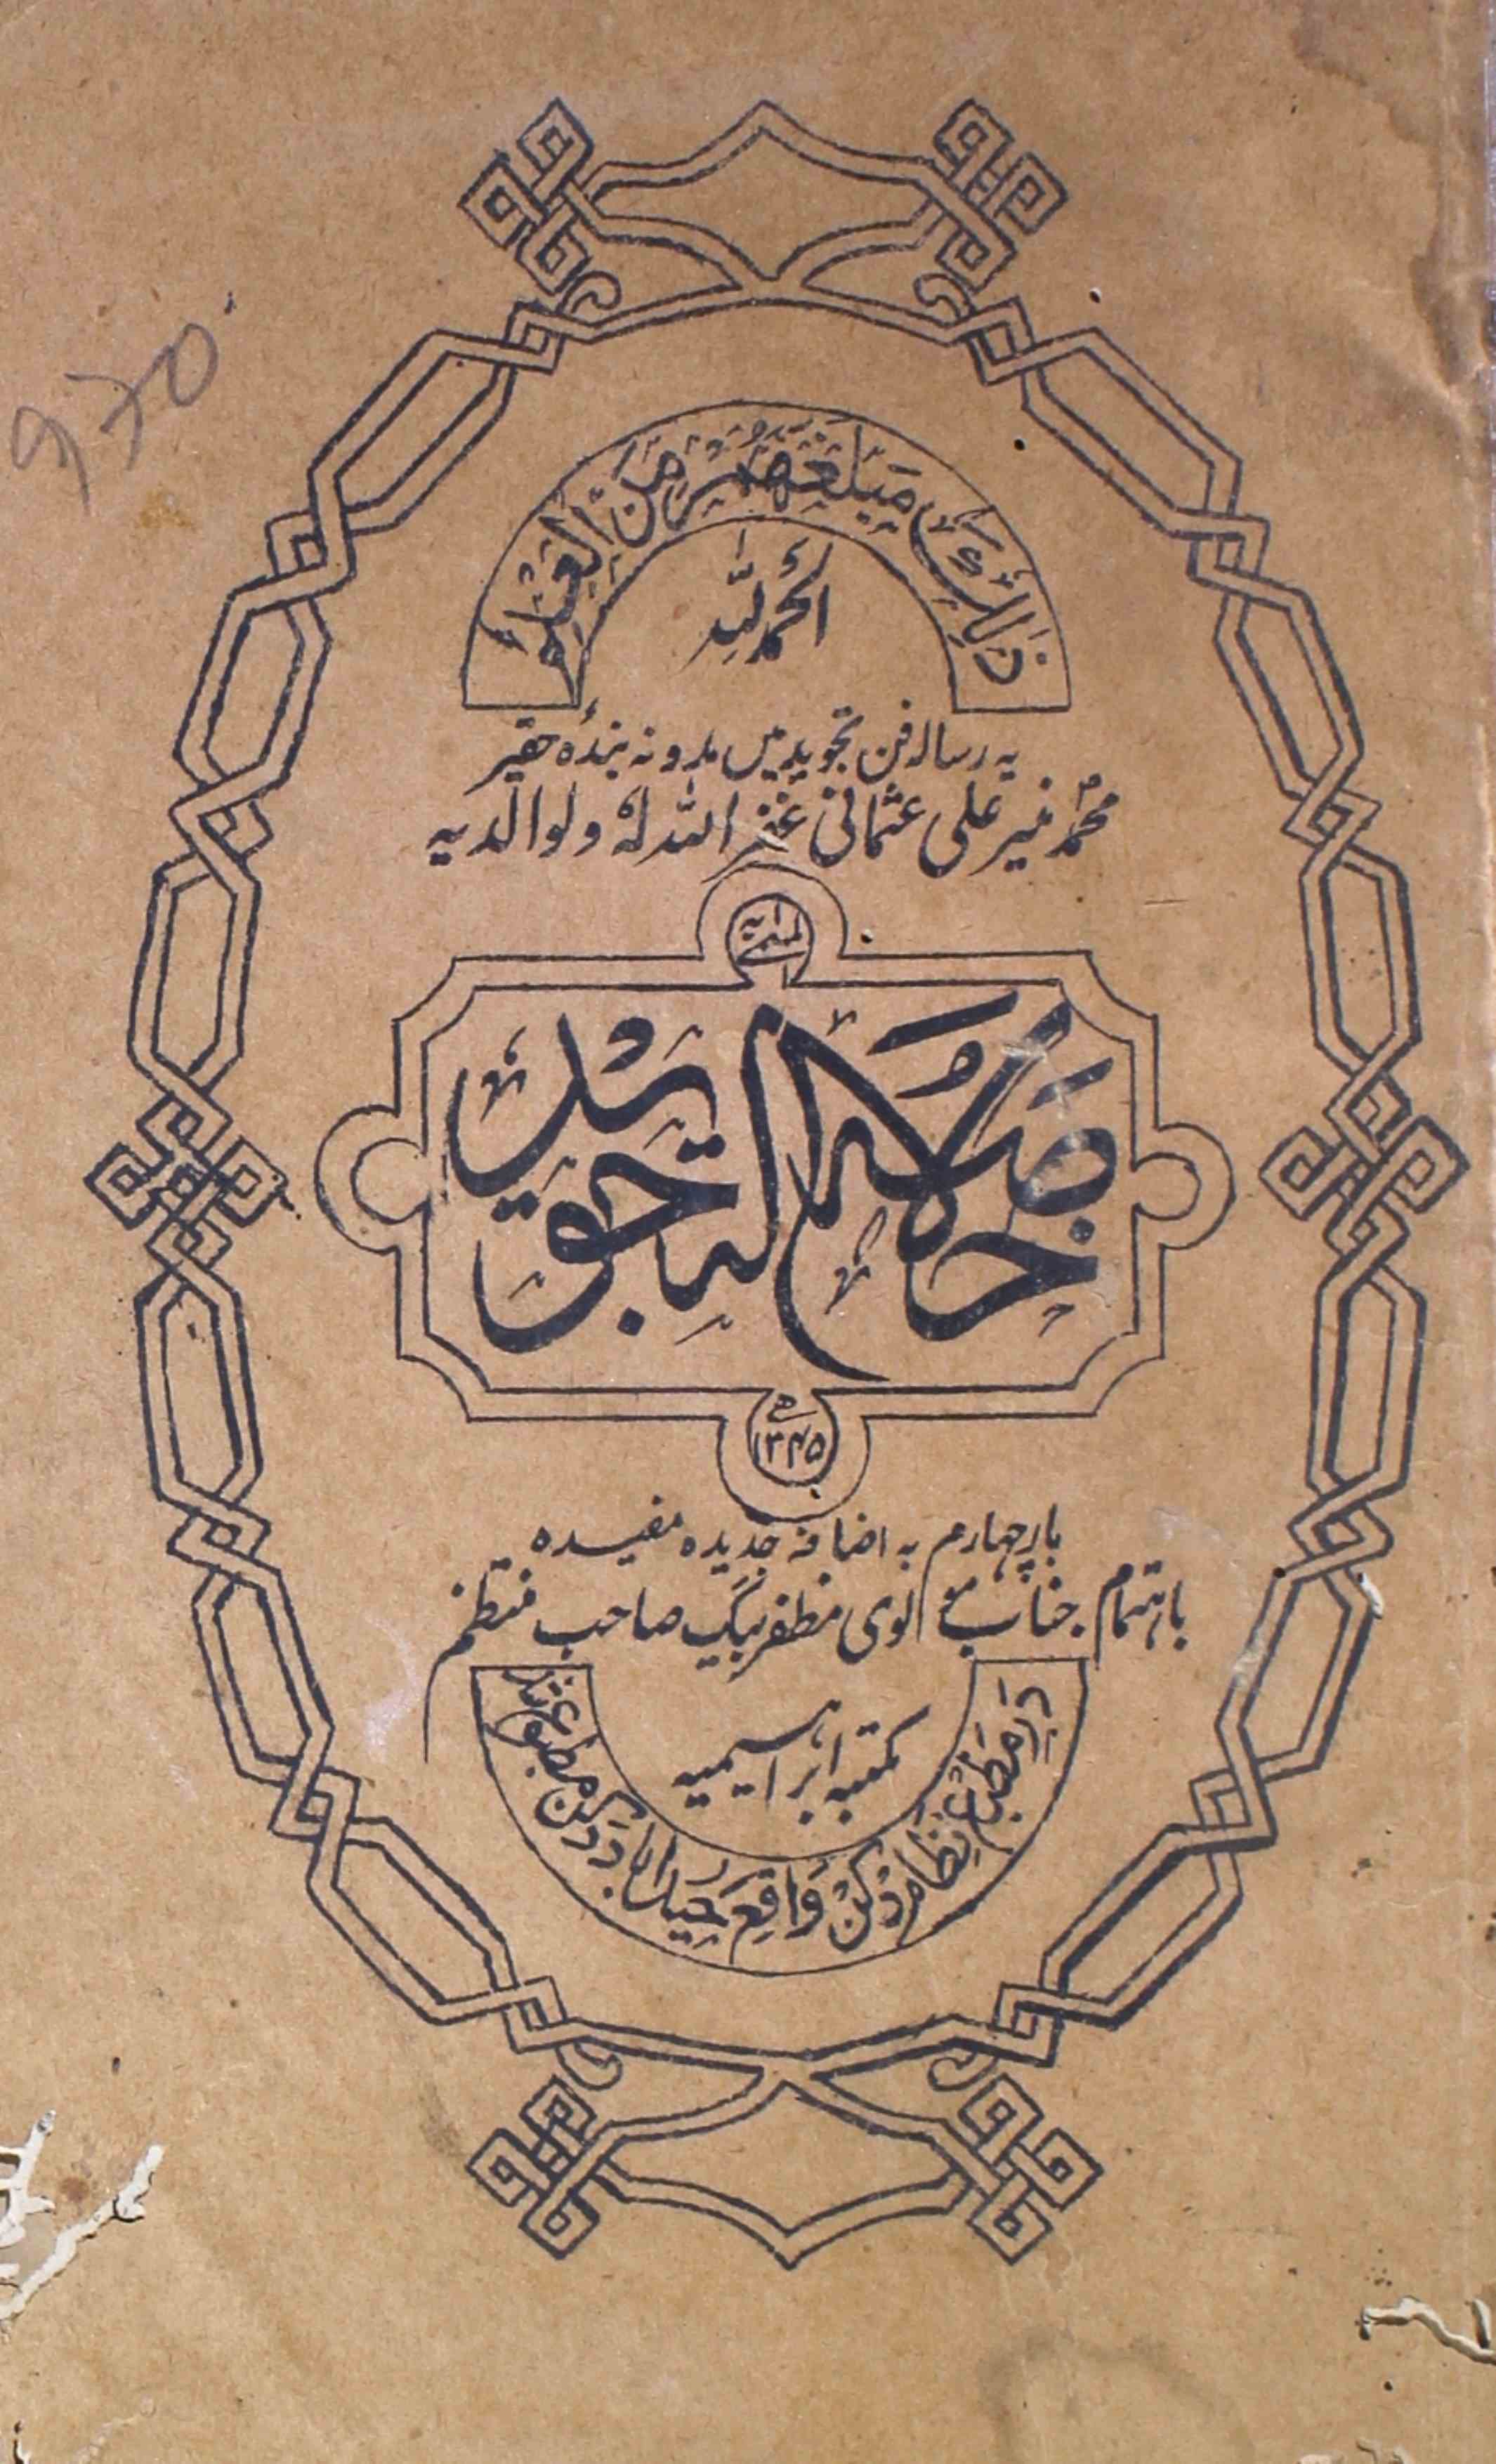 ذٰلِكَ مَبْلَغُهُمْ مِنَ الْعِلْمِ
الحمد للہ
یہ رسالہ فن تجوید میں مدونہ بندۂ حقیر
محمد منیر علی عثمانی غفر اللہ لہٗ ولوالدیہ
المسمے بہ
خلاصۃ التجوید
۱۳۴۵ھ
بار چہارم بہ اضافہ جدیدہ مفیدہ
باہتمام جناب مولوی مظفر بیگ صاحب منتظم
مکتبہ ابراہیمیہ
در مطبع نظام دکن واقع حیدراباد دکن مطبوع شد